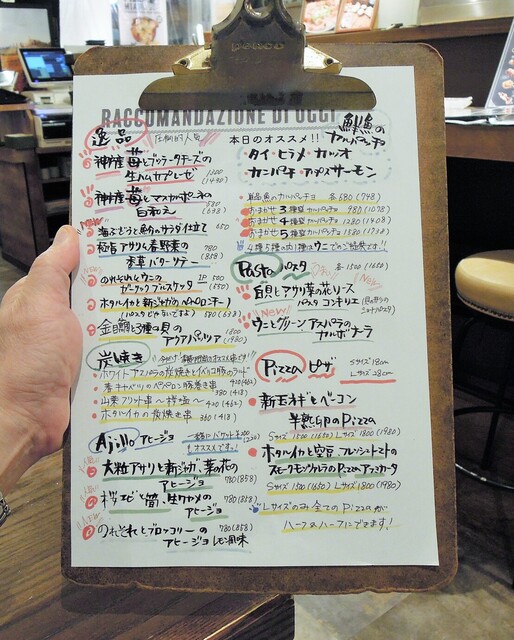 pelico
RACCOMANDAZIONE DI OGGI
逸品
圧倒的人気
神座苺とブッラータチーズの
生ハムカプレーゼ 1300
(1430)
神座苺とマスカルポーネの
白和え 580
(638)
NEW
海ぶどうと魚介のサラダ仕立て 650
極旨アサリと春野菜の 780
香草バターソテー (858)
のれそれとウニの 1P 500
ガーリックブルスケッタ (550)
ホタルイカと新ジャガのペペロンチーノ
(パスタじゃないですよ) 580(638)
金目鯛と3種の貝の 1800
アクアパッツァ (1980)
炭焼き
ホワイトアスパラの炭焼きとイベリコ豚のラード
春キャベツのペペロンチーノ豚巻き串
山菜フリット串
420(462)
ホタルイカの炭焼き串 360(418)
Ajillo アヒージョ
一緒にバゲットを
オススメです!
大粒アサリと新ジャガ、菜の花の
アヒージョ 780(858)
桜エビと筍、生ワカメの
アヒージョ 780(858)
のれそれとブロッコリーの 780(858)
アヒージョ レモン風味
鮮魚の
カルパッチョ
本日のオススメ!!
・タイ・ヒラメ・カツオ
・カンパチ・アトランサーモン
・単品魚のカルパッチョ 各680(748)
おまかせ3種盛カルパッチョ 980(1078)
おまかせ4種盛カルパッチョ 1280(1408)
おまかせ5種盛カルパッチョ 1580(1738)
Pasta パスタ
各1500(1650)
New
旨貝とアサリ菜の花ソース
パスタ コンキリエ
New
ウニとグリーンアスパラの
カルボナーラ
Pizza ピザ
Sサイズ 18cm
Lサイズ 28cm
新玉ネギとベーコン
半熟卵のPizza
Sサイズ 1500(1650) Lサイズ 1800(1980)
ホタルイカと空豆、フレッシュトマトの
スモークモッツァレラのPizza
Sサイズ 1500(1650) Lサイズ 1800(1980)
Lサイズのみ全てのPizzaが
ハーフ&ハーフにできます!